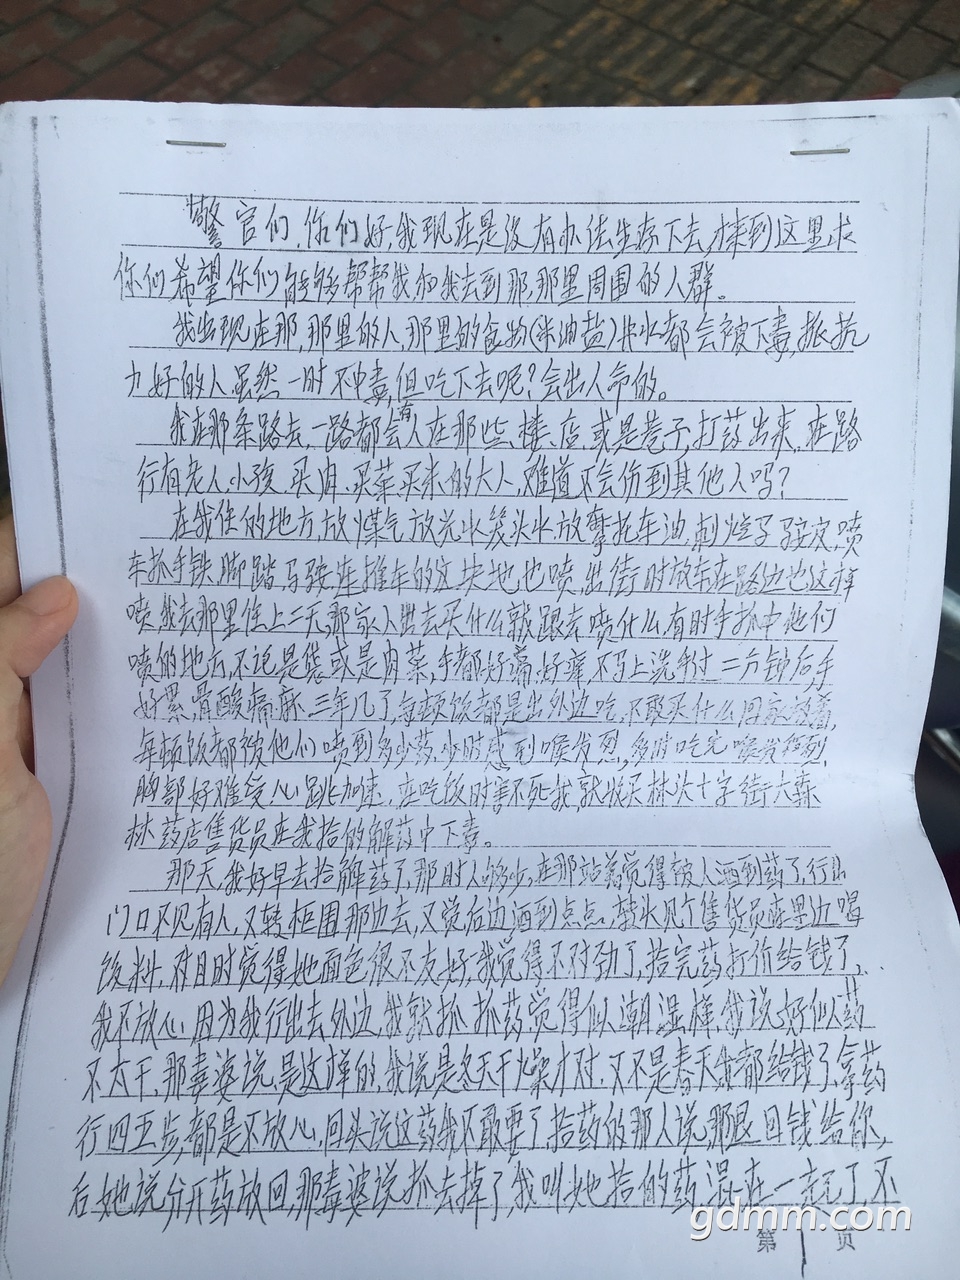 警官们,你们好,我现在是没有办法生存下去,才来到这里求
你们希望你们能够帮帮我和我去到那,那里周围的人群。
我出现在那,那里的人,那里的食物(米油盐)块水都会被下毒,抵抗
力好的人虽然一时不中毒,但吃下去呢?会出人命的。
我在那条路去,一路都会有人在那些、楼、店、或是巷子,打药出来,在路
行有老人、小孩、买肉、买菜、买米的大人,难道不会伤到其他人吗?
在我住的地方,放煤气,放 水 头水,放摩托车油,刺烂 子鞍皮,喷
车抓手铁,脚踏,马鞍,连推车的这块地也喷,出街时放车在路边也这样
喷,我去那里住上二天,那家人出去买什么就跟去喷什么,有时手抓中他们
喷的地方,不论是袋或是肉菜,手都好痛、好痒,不马上洗手过一二分钟后手
好累,骨酸痛、麻,三年几了,每顿饭都是出外边吃,不敢买什么回家放着,
每顿饭都被他们喷到多少药,少时感到喉发烈,多时吃完喉发 烈,
胸部好难受,心跳加速,在吃饭时害不死我,就收买林头十字街六森
林药店售货员在我拾的解药中下毒。
那天,我好早去拾解药了,那时人够少,在那站着觉得被人洒到药了,行出
门口不见有人,又转柜围那边去,又觉后边洒到点点,转 见个售货员在里边喝
饮料,对目时觉得她面色很不友好,我觉得不对劲了,拾完药打价给钱了,
我不放心,因为我行出去外边,我就抓抓药觉得似潮湿样,我说好似药
不太干,那毒婆说,是这样的,我说是冬天干燥才对,又不是春天,我都给钱了,拿药
行四五步,都是不放心,回头说这药我不敢要了,拾药的那人说,那退回钱给你,
后她说分开药放回,那毒婆说抓去掉了,我叫她拾的药,混在一起了,不
第1页
gdmm.com